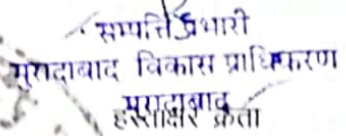 सम्पत्ति प्रभारी
मुरादाबाद विकास प्राधिकरण
मुरादाबाद
हस्ताक्षर क्रेता